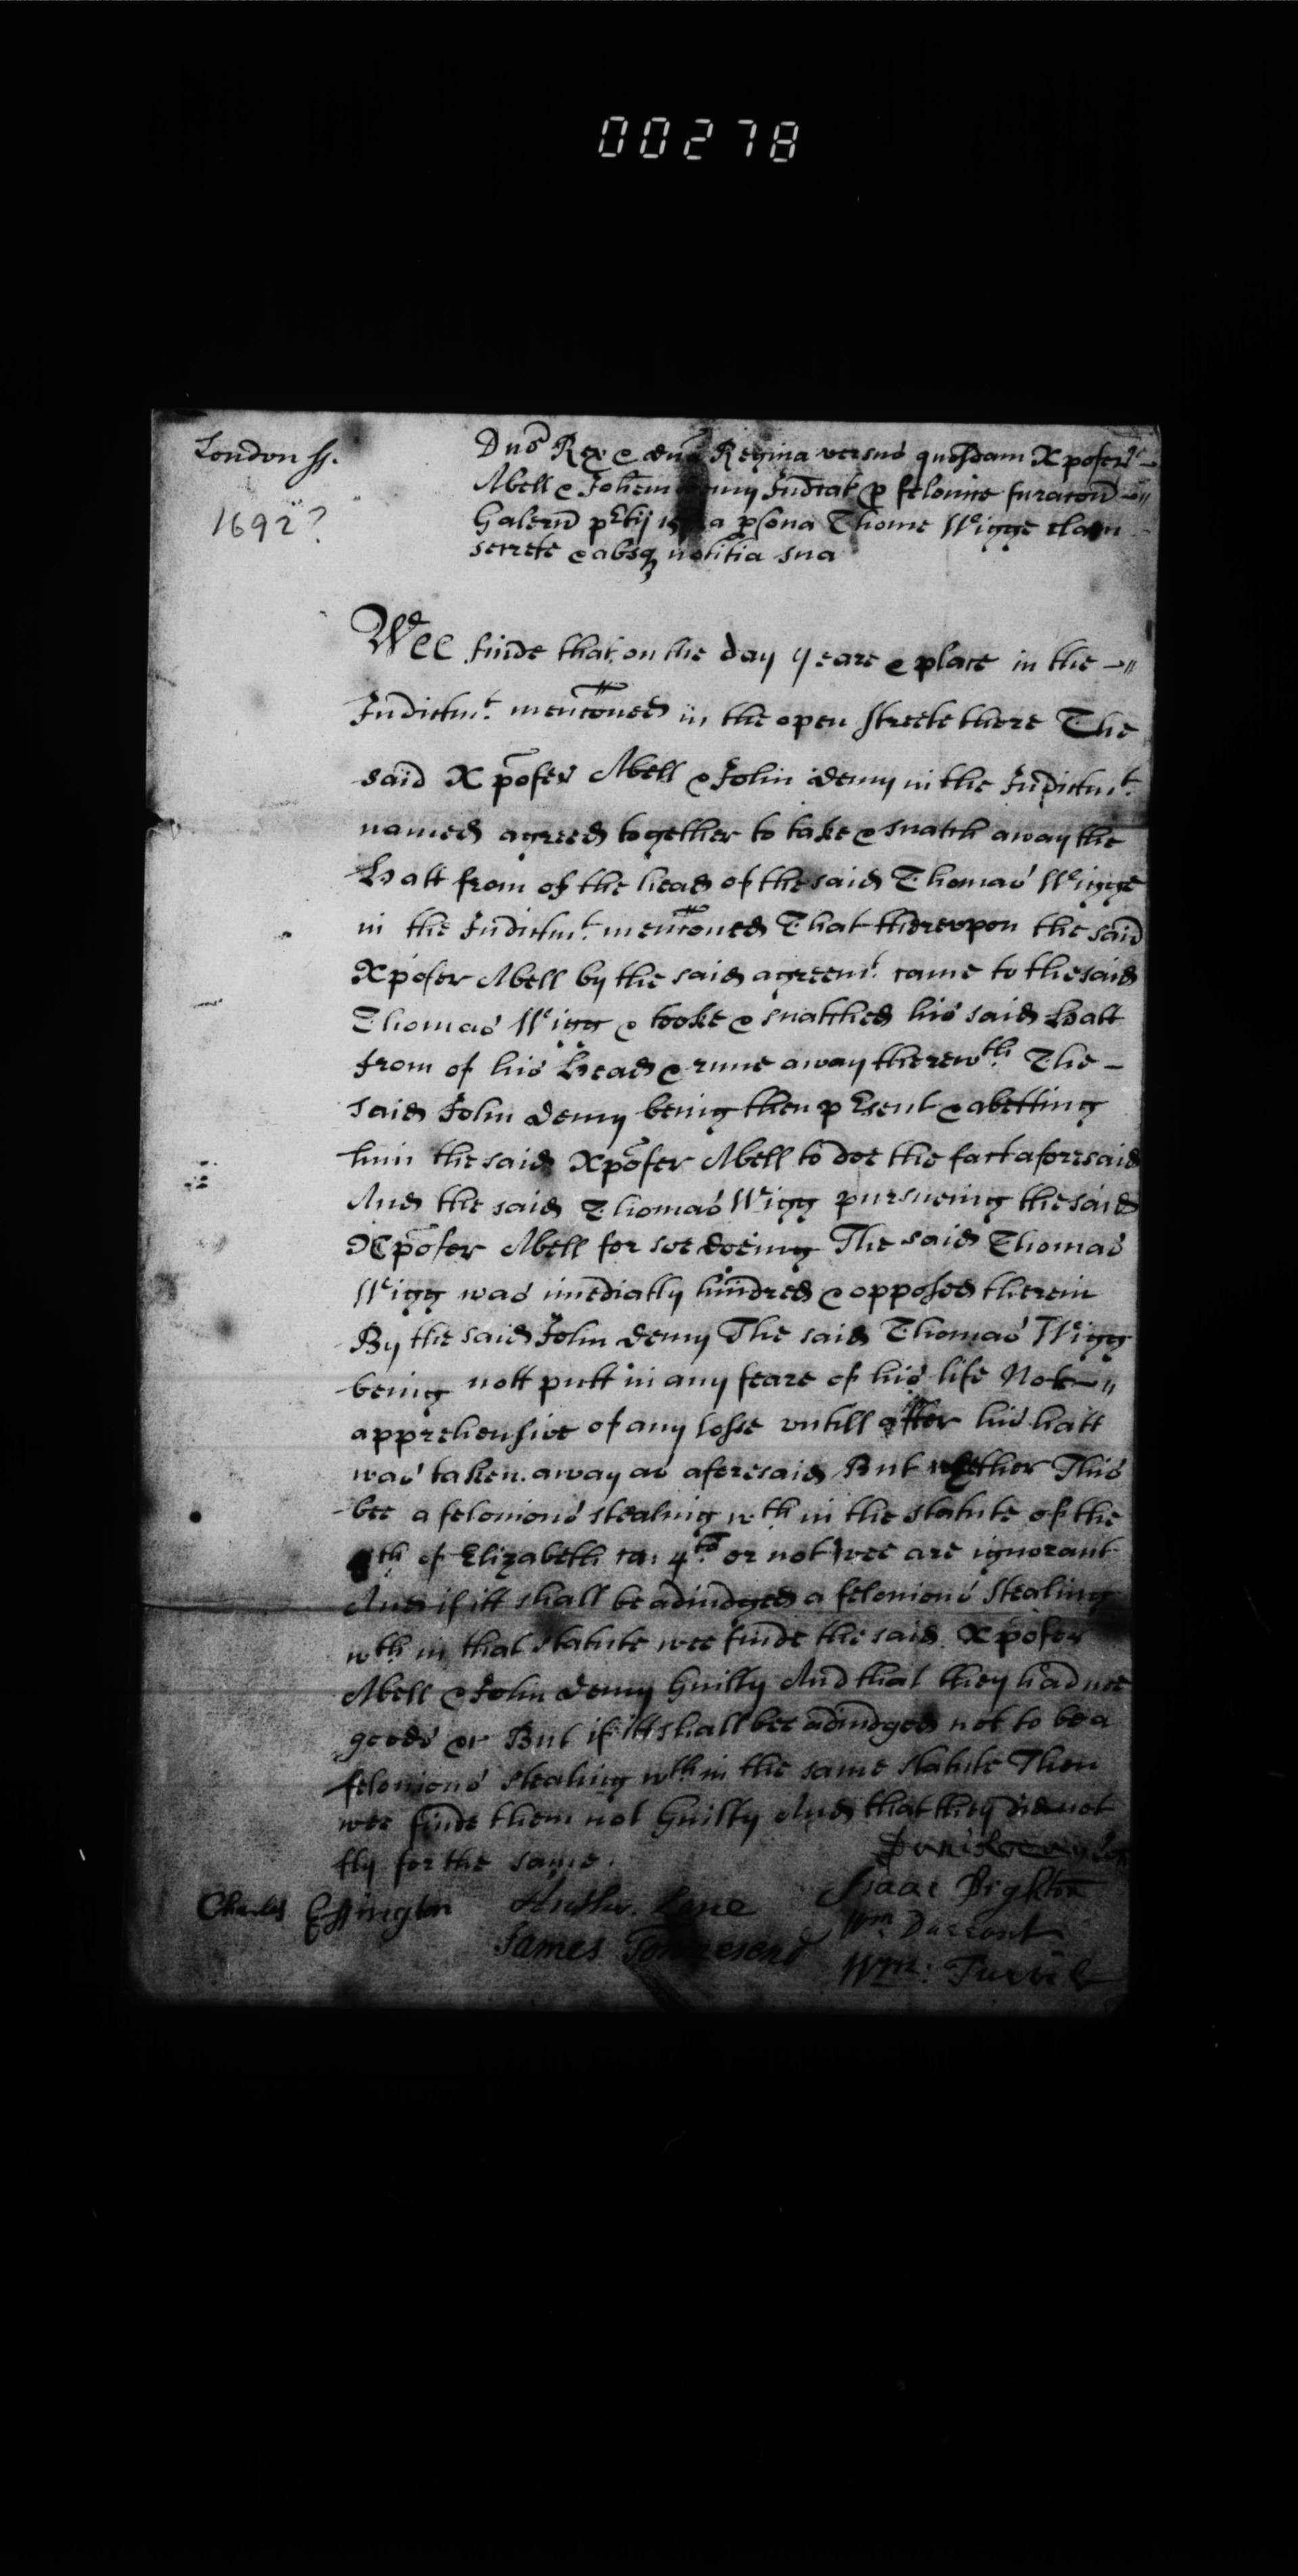 00278
London ss.
1692?
Dns Rex & dna Regina versus quosdam Xpofer
Abell & Johem Demy Indcat p felonice furacon
Galeru p̱tij a psona Thome Wigge clam
secrete & absq notitia sua
Wee finde that on the day yeare & place in the
Indictmt. menconed in the open streete there The
said Xpofer Abell & John Demy in the Indictmt.
named agreed together to take & snatch away the
Hatt from of the head of the said Thomas Wigge
in the Indictmt. menconed That thereupon the said
Xpofer Abell by the said agreemt. came to the said
Thomas Wigg & tooke & snatched his said Hatt
from of his Head & runne away therewth. The
said John Demy being then present & abetting
him the said Xpofer Abell to doe the fact aforesaid
And the said Thomas Wigg pursueing the said
Xpofer Abell for soe doeing The said Thomas
Wigg was imediatly hindred & opposed therein
By the said John Demy The said Thomas Wigg
being nott putt in any feare of his life Not
apprehensive of any losse untill after his hatt
was taken away as aforesaid But whether This
bee a felonious stealing wth in the statute of the
8th of Elizabeth ca: 4to or not wee are ignorant
And if itt shall be adiudged a felonious stealing
wth in that statute wee finde the said Xpofer
Abell & John Demy Guilty And that they had noe
goods &c But if itt shall bee adiudged not to be a
felonious stealing wth in the same statute Then
wee finde them not Guilty And that they did not
fly for the same.
Charles Effington Antho. Lane Isaac Brighton
James Townesend Wm Durrant
Wm: Turvil